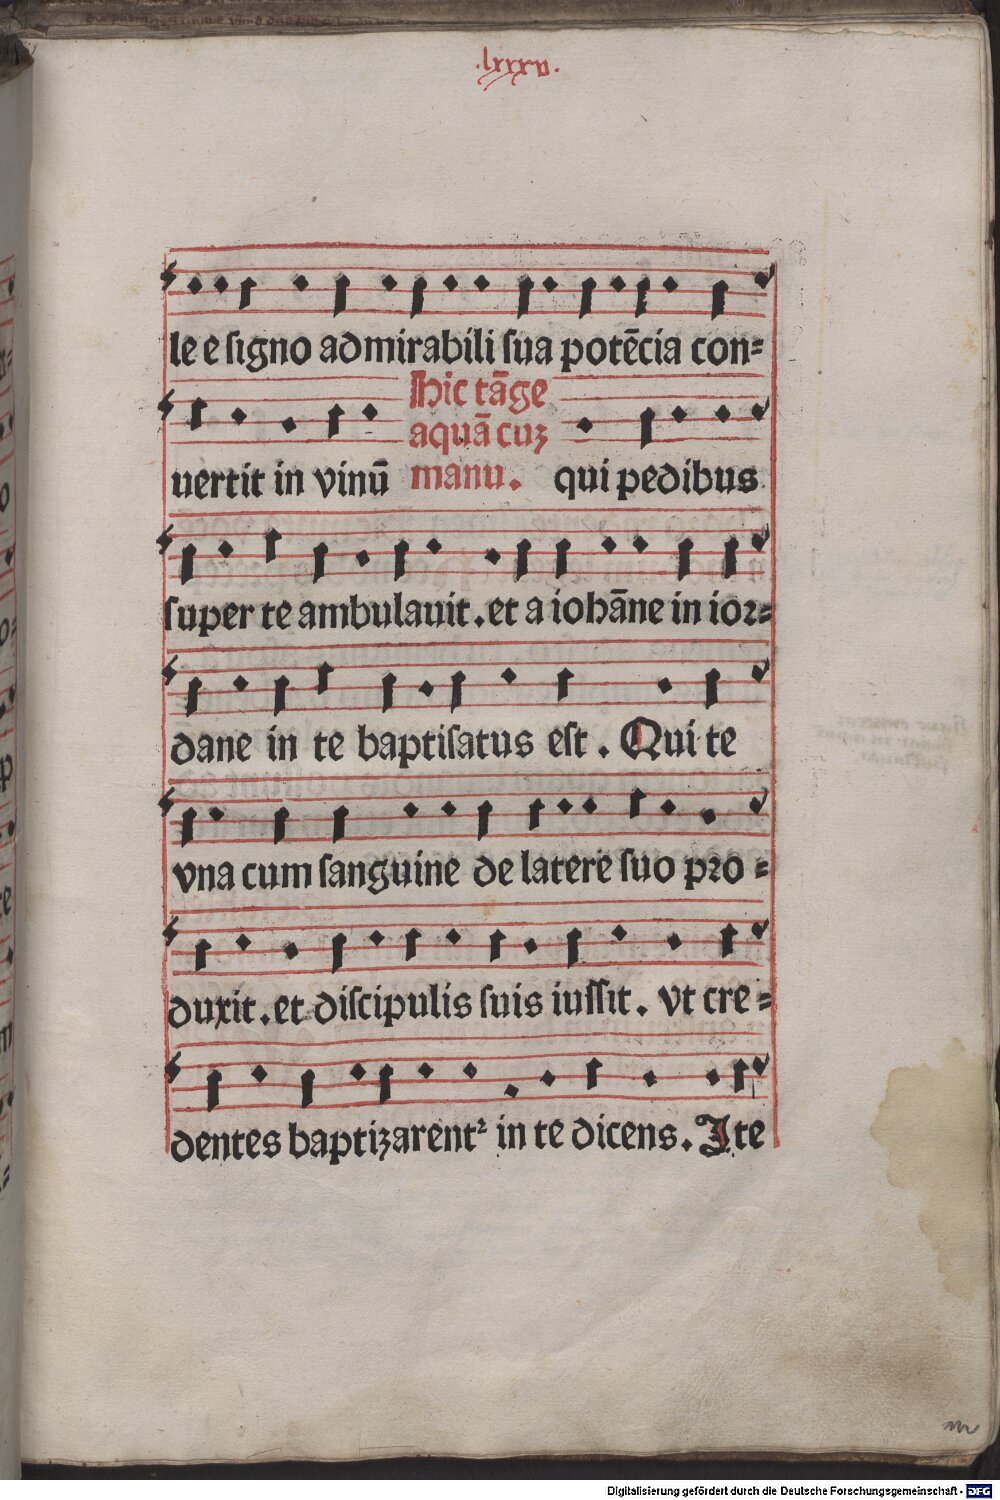 .lxxxv.
le e signo admirabili sua potēcia con=
Hic tāge
aquā cuʒ
manu.
uertit in vinū qui pedibus
super te ambulauit. et a iohāne in ior=
dane in te baptisatus est. Qui te
vna cum sanguine de latere suo pro=
duxit. et discipulis suis iussit. vt cre=
dentes baptizarentᷣ in te dicens. Ite
Digitalisierung gefördert durch die Deutsche Forschungsgemeinschaft - DFG